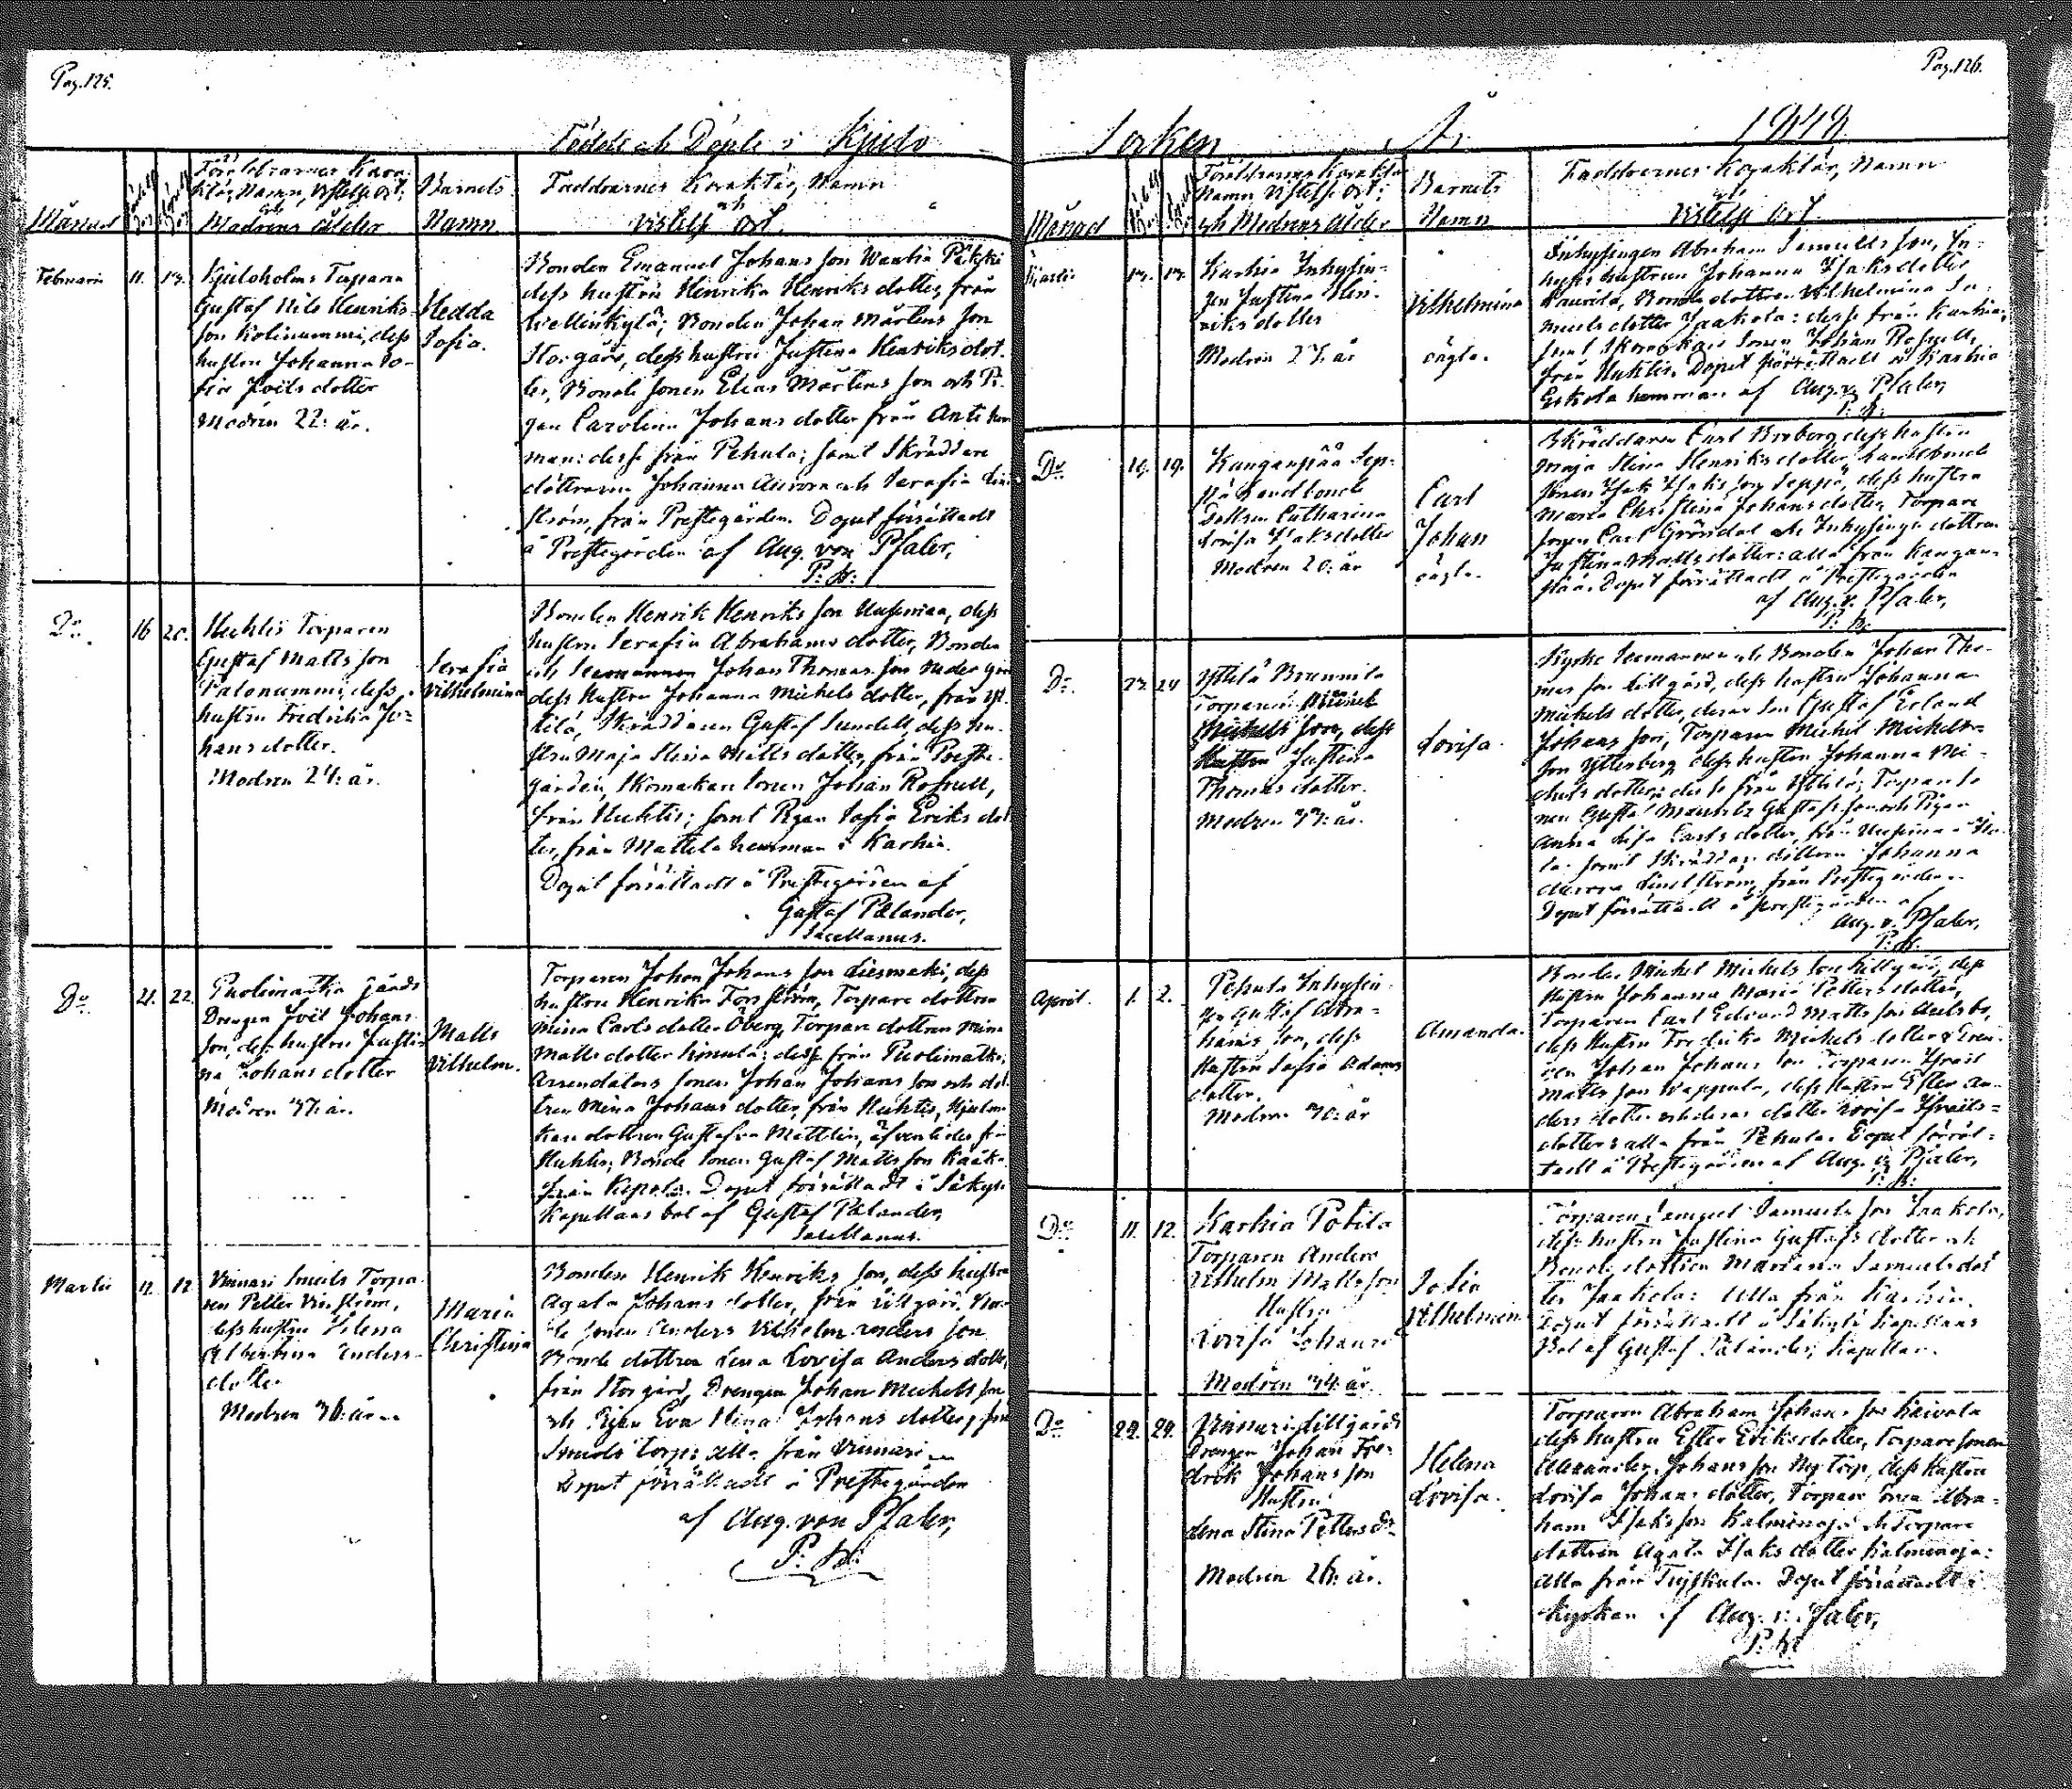 Pag. 125.
Födde och Döpte i Kjulo
Månad
Föräldrarnes Kara-
ktär, Namn, Vistelse Ort,
och
Modrens ålder
Barnets
Namn
Faddrarnes Karaktär, Namn
och
Vistelse Ort.
Februarii
11.
13.
Kjuloholms Torparen
Gustaf Nils Henriks
son Kolinummi, dess
hustru Johanna So-
fia Joëls dotter
Modren 22: år.
Hedda
Sofia.
Bonden Emanuel Johans son
dess hustru Henrika Henriks dotter, från
Wellinkylä; Bonden Johan Mårtens son
Storgård, dess hustru Justina Henriks dot-
ter, Bonde sonen Elias Mårtens son och Pi-
gan Carolina Johans dotter från Anti hem
man: desse från Pehula; samt Skräddare
döttrarne Johanna Aurora och Serafia Lind
ström, från Prestegården. Dopet förrättadt
å Prestegården af Aug. von Pfaler,
Do
16
20.
Huhtis Torparen
Gustaf Matts son
Palonummi, dess
hustru Fredrika Jo-
hans dotter.
Modren 24: år.
Serafia
Vilhelmina
Bonden Henrik Henriks son Uusimaa, dess
hustru Serafia Abrahams dotter, Bonden
och Sexmannen Johan Thomas son
dess hustru Johanna Michels dotter, från Ytt
tilä, Skräddaren Gustaf Sundell, dess hu-
stru Maja Stina Matts dotter, från Preste-
gården, Skomakare sonen Johan Rosnell,
från Huhtis; samt Pigan Sofia Eriks dot
ter, från Mattila hemman i Karhia.
Dopet förrättadt å Prestegården af
Gustaf Pælander,
Sacellanus.
Do
21.
22.
Puolimatka gårds
Drengen Joël Johans
son, dess hustru Justi-
na Johans dotter
Modren 37: år.
Matts
Vilhelm.
Torparen Johan Johans son Liesmäki, dess
hustru Henrika Forsström, Torpare dottren
Mina Carls dotter Öberg, Torpare dottren Mina
Matts dotter desse från Puolimatka;
Arrendators sonen Johan Johans son och dot
tren Mina Johans dotter, från Huhtis, Hjulma-
kare dottren Gustafva Mattlin, äfvenledes från
Huhtis; Bonde sonen Gustaf Matts son
från Kepola. Dopet förrättadt i Säkylä
Kapellans bol af Gustaf Pælander,
Sacellanus.
Martii
12
Vinnari Smeds Torpa-
ren Petter
dess hustru Helena
Albertina Anders
dotter
Modren 36: år
Maria
Christina
Bonden Henrik Henriks son, dess hustru
Agata Johans dotter, från Lillgård, Bon-
de sonen Anders Vilhelm Anders son
Bonde dottren Lena Lovisa Anders dotter,
från Storgård, Drengen Johan Michels son
och Pigan Eva Stina Johans dotter, från
Smeds Torp: alla från Vinnari
Dopet förrättadt å Prestegården
af Aug. von Pfaler,
Pag. 126.
Socken
År
1848
Månad
Föräldrarnes Karaktär
Namn Vistelse Ort:
och Modrens ålder
Barnets
Namn
Faddrarnes Karaktär, Namn
och
Vistelse Ort.
Martii
Karhia Inhysin-
gen Justina Hen-
riks dotter
Modren 27: år
Vilhelmina
oägta.
Inhysingen Abraham Samuels son, In-
hyses hustrun Johanna Isaks dotter
Bonde dottren Vilhelmina Sa-
muels dotter Jaakola: desse från Karhia;
samt Skomakare sonen Johan Rosnell,
från Huhtis. Dopet förrättadt å Karhia
Eskola hemman af Aug. v. Pfaler,
Do
19.
19.
Kanganpää Sep-
pä
Dottren Catharina
Lovisa Isaks dotter
Modren 20: år
Carl
Johan
oägta.
Skräddaren Carl Broberg, dess hustru
Maja Stina Henriks dotter,
Sonen Isak Isaks son Seppä, dess hustru
Maria Christina Johans dotter, Torpare
sonen Carl Gröndal och Inhysings dottren
Justina Matts dotter: alla från Kangan-
pää. Dopet förrättadt å Prestegården
af Aug. v. Pfaler,
Do.
24
Yttilä
Torparen Michel
Michels son, dess
Hustru Justina
Thomas dotter.
Modren
Lovisa.
Kyrko Sexmannen och Bonden Johan Tho-
mas son Lillgård, dess hustru Johanna
Michels dotter, deras son Gustaf Erland
Johans son, Torparen Michel Michels-
son Ytterberg, dess hustru Johanna Mi-
chels dotter; desse från Yttilä; Torpare so-
nen Gustaf Mauritz Gustafs son och Pigan
Anna Lisa Carls dotter, från
la. samt Skräddare dottren Johanna
Aurora Lindström, från Prestegården.
Dopet förrättadt å Prestegården af
Aug. v. Pfaler,
April.
1.
2.
Pehula Inhysin-
gen Gustaf Abra-
hams son, dess
Hustru Sofia Adams
dotter.
Modren 30: år
Amanda.
Bonden Michel Michels son Lillgård, dess
Hustru Johanna Maria Petters dotter,
Torparen Carl Edvard Matts son
dess Hustru Fredrika Michels dotter, Dren-
gen Johan Johans son Torparen Israel
Matts son Wappula, dess Hustru Ester An-
ders dotter och deras dotter Lovisa Israels-
dotter: alla från Pehula. Dopet förrät-
tadt å Prestegården af Aug. v. Pfaler,
Do
11.
12.
Karhia
Torparen Anders
Vilhelm Matts son
Hustru
Lovisa Johans d
Modren 34: år.
Sofia
Vilhelmina
Torparen Samuel Samuels son Jaakola,
dess hustru Justina Gustafs dotter och
Bonde dottren Mariana Samuels dot
ter Jaakola: Alla från Karhia.
Dopet förrättadt i Säkylä Kapellans
Bol af Gustaf Pælander, Kapellan.
Do
29.
29.
Vinnari Lillgårds
Drengen Johan Fre-
drik Johans son
Hustru
Lena Stina Petters dr
Modren 26: år.
Helena
Lovisa.
Torparen Abraham Johans son
dess hustru Ester Eriks dotter, Torpare sonen
Alexander Johans son Nytorp, dess Hustru
Lovisa Johans dotter, Torpare sonen Abra-
ham Isaks son Kalmenoja och Torpare
dottren Agata Isaks dotter Kalmenoja:
Alla från Tuiskula. Dopet förrättadt i
Kyrkan af Aug. v. Pfaler,